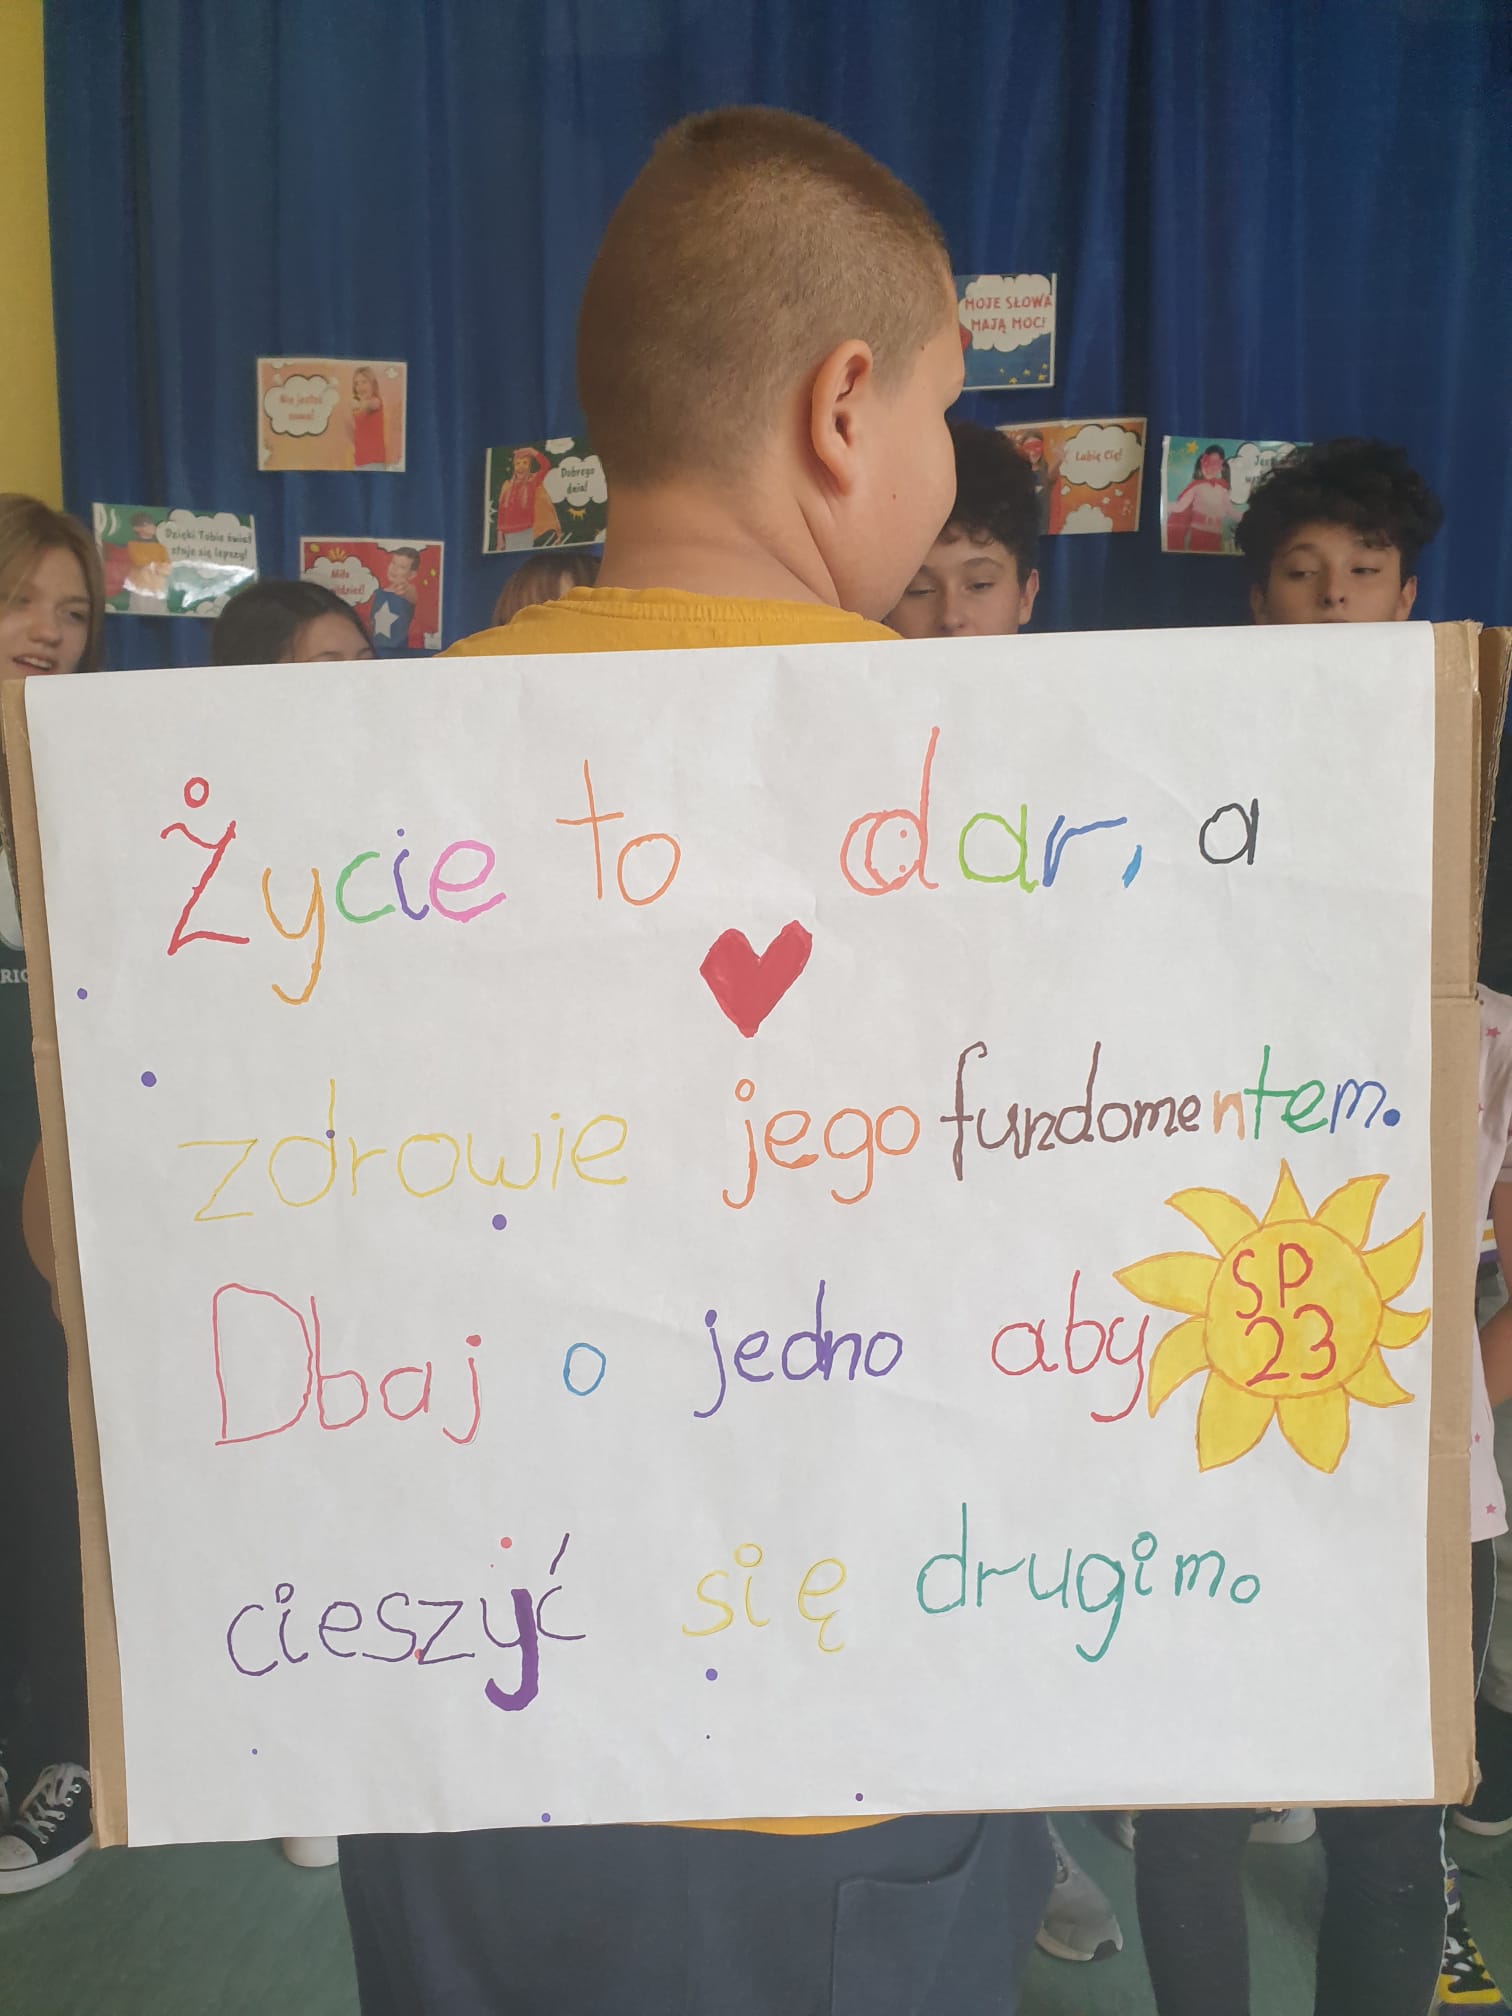 MOJE SŁOWA
MAJĄ MOC!
Nie jesteś
sama!
Dobrego
dnia!
Lubię Cię!
Dzięki Tobie świat
staje się lepszy!
Miło
Życie to dar, a
zdrowie jego fundomentem.
Dbaj o jedno aby
SP
23
cieszyć się drugim.